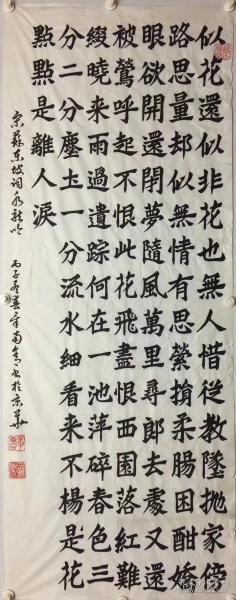 似花還似非花也無人惜從教墜拋家傍
路思量却似無情有思縈損柔腸困酣嬌
眼欲開還閉夢隨風萬里尋郎去處又還
被鶯呼起不恨此花飛盡恨西園落紅難
綴曉来雨過遺踪何在一池萍碎春色三
分二分塵土一分流水細看来不楊是花
點點是離人淚
宋蘇東坡詞水龍吟 丙子 於京華